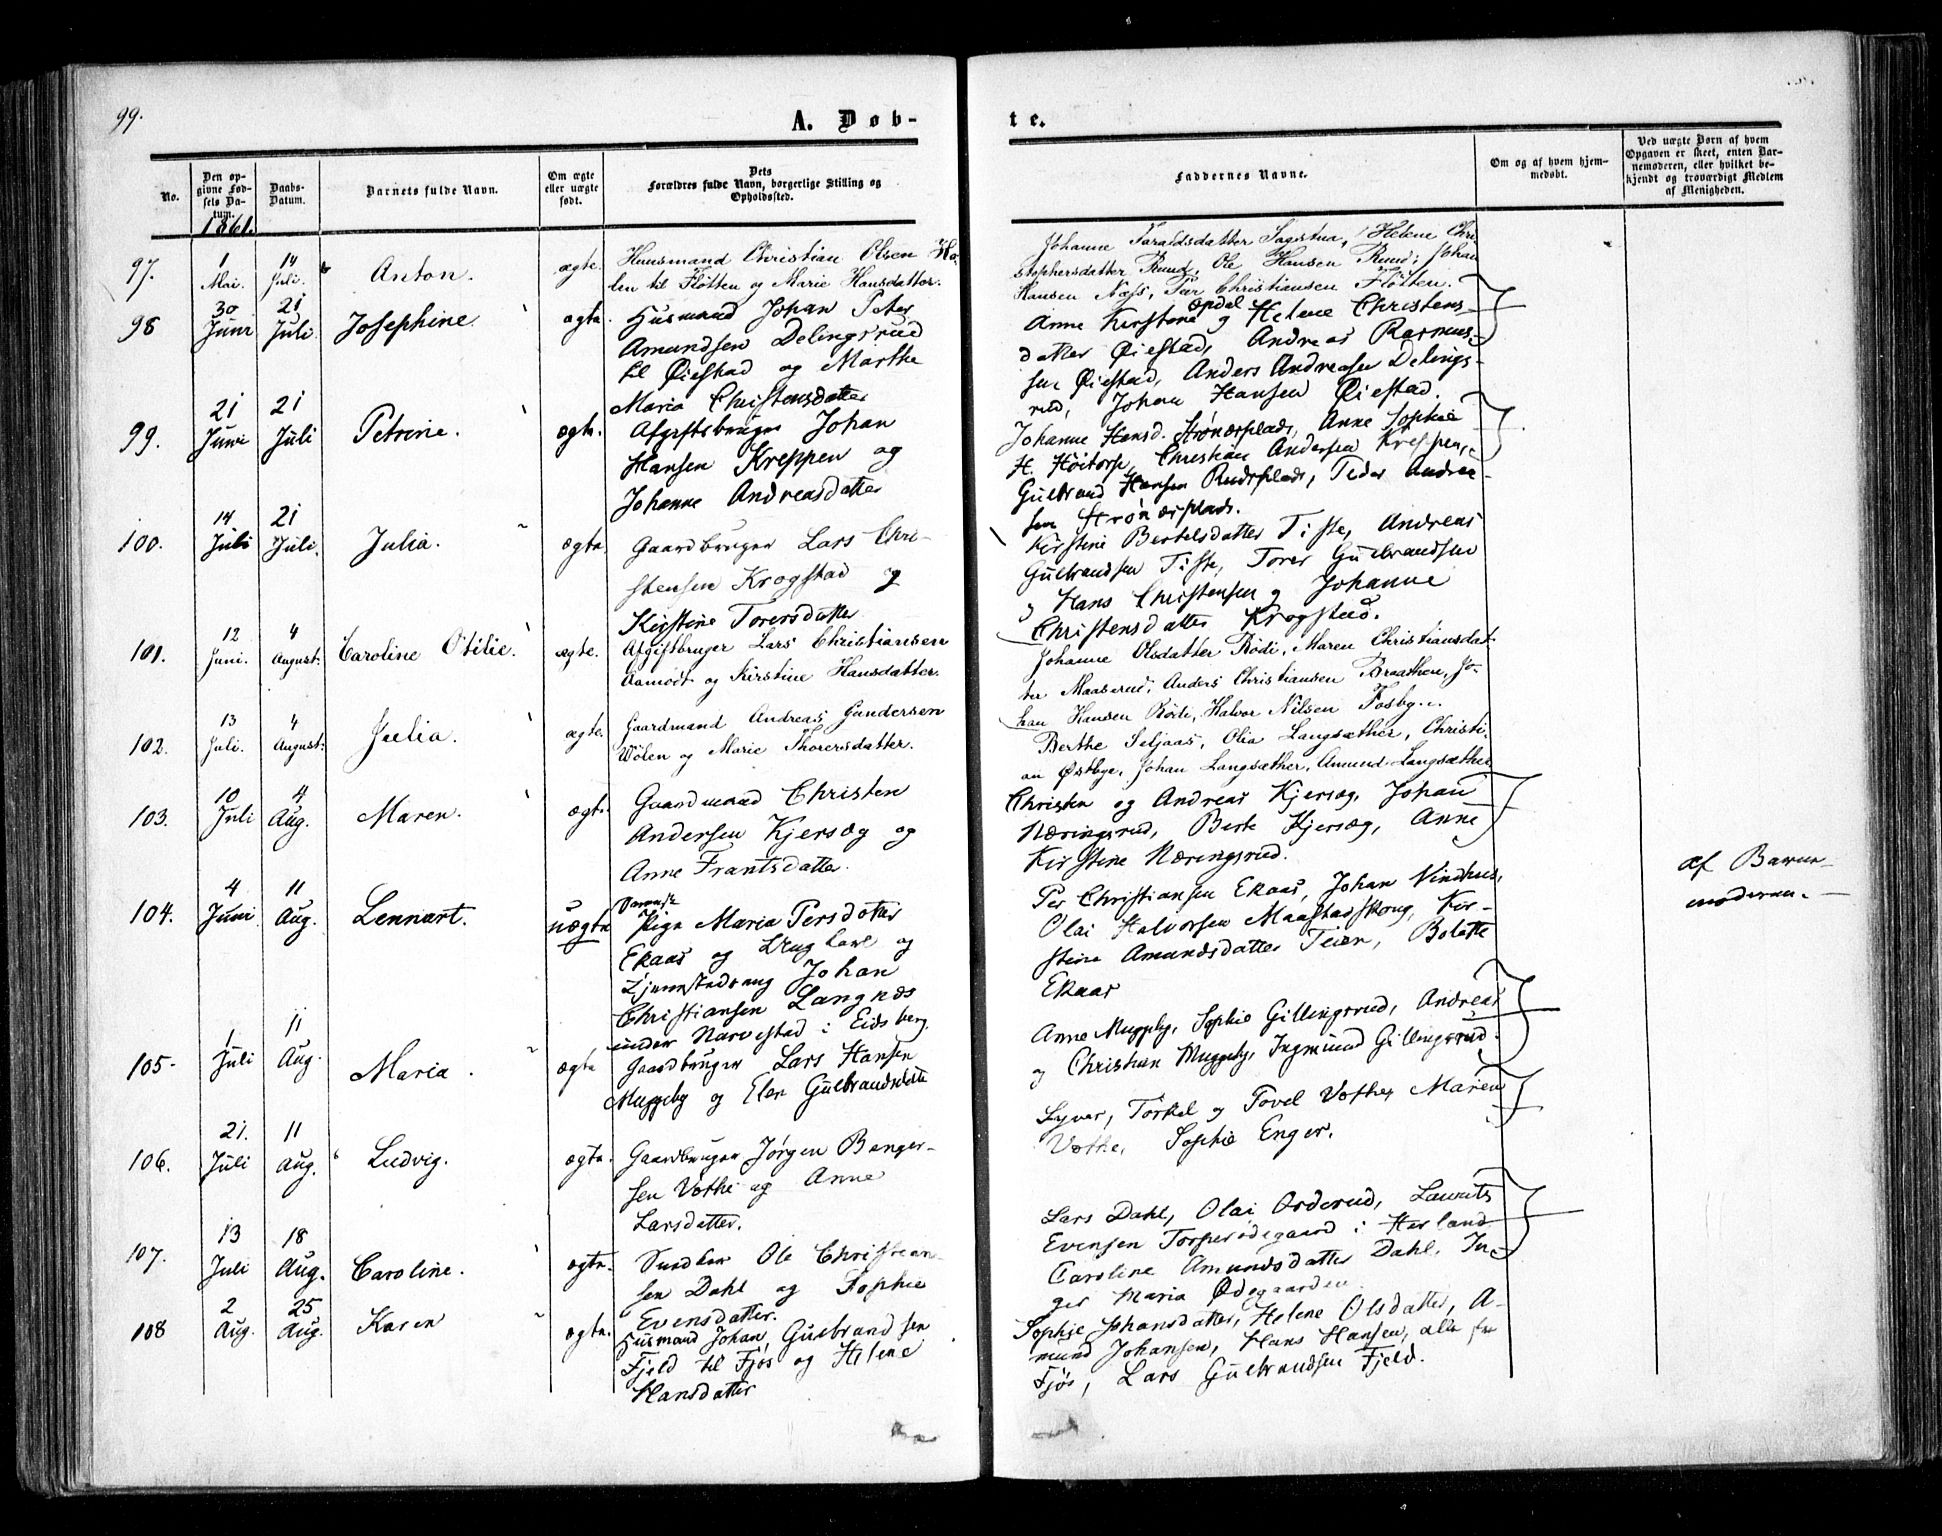 99.
A. Døb-
No.
Den op-
givne Fød-
sels Da-
tum.
Daabs-
Datum.
Barnets fulde Navn.
Om ægte
eller uægte
født.
Dets
Forældres fulde Navn, borgerlige Stilling og
Opholdssted.
1861.
97.
1
Mai.
14
Juli.
Anton.
ægte.
Huusmand Christian Olsen Ho-
len til Fløtten og Marie Hansdatter.
98
30
Juni
21
Juli
Josephine.
ægte.
Husmand Johan Peter
Amundsen Delingsrud
til Øiestad og Marthe
Maria Christensdatter
99.
21
Juni
21
Juli
Petrine.
ægte.
Afgiftsbruger Johan
Hansen Kreppen og
Johanne Andreasdatter
100.
14
Juli
21
Juli.
Julia.
ægte.
Gaardbruger Lars Chri-
stensen Krogstad og
Kirstine Torersdatter
101.
12
Juni.
4
August.
Caroline Otilie.
ægte.
Afgiftbruger Lars Christiansen
Aamodt og Kirstine Hansdatter.
102.
13
Juli.
4
August.
Julia.
ægte.
Gaardmand Andreas Gundersen
Wølen og Marie Thorersdatter.
103.
10
Juli
4
Aug.
Maren.
ægte.
Gaardmand Christen
Andersen Kjersæg og
Anne Frantsdatter.
104.
4
Juni
11
Aug.
Lennart.
uægte
Pige Maria Persdatter
Ekaas og Ungkarl og
Johan
Christiansen Langnæs
under Narvestad i Eidsberg.
105.
1
Juli
11
Aug.
Maria.
ægte
Gaardbruger Lars Hansen
Muggeby og Elen Gulbrandsdatter
106.
21.
Juli
11
Aug.
Ludvig.
ægte.
Gaardbruger Jørgen Benger-
sen Vothe og Anne
Larsdatter.
107.
13
Juli
18
Aug.
Caroline.
ægte.
Ole Christian-
sen Dahl og Sophie
Evensdatter.
108
2
Aug.
25
Aug.
Karen
ægte.
Husmand Johan Gulbrandsen
Fjeld til Fjøs og Helene
Hansdatter
te.
Faddernes Navne.
Om og af hvem hjem-
medøbt.
Ved uægte Børn af hvem
Opgaven er skeet, enten Bar-
nemoderen, eller hvilket be-
kjendt og troværdigt Medlem
af Menigheden.
Johanne Taraldsdatter Sagstua, Helene Chri-
stophersdatter Rund, Ole Hansen Rund, Johan
Hansen Næss, Per Christiansen Fløtten.
Opdal
Anne Kirstine og Helene Christens-
datter Øiestad, Andreas Rasmus-
sen Øiestad, Anders Andreasen Delings-
rud, Johan Hansen Øiestad.
Johanne Hansd. Strønæsplads, Anne Sophie
H. Høitorp, Christian Andersen Kreppen,
Gulbrand Hansen Rudsplads, Peder Andrea-
sen Strønæsplads.
Kirstine Bertelsdatter Tiste, Andreas
Gulbrandsen Tiste, Torer Gulbrandsen
og Hans Christensen og Johanne
Christensdatter Krogstad.
Johanne Olsdatter Rødi, Maren Christiansdat-
ter Maaserud, Anders Christiansen Braathen, Jo-
han Hansen Rødi, Halvor Nilsen Fosby.
Berthe Seljaas, Olia Langsæther, Christi-
an Østbye, Johan Langsæther, Amund Langsæther
Christen og Andreas Kjersæg, Johan
Næringsrud, Berte Kjersæg, Anne
Kirstine Næringsrud.
Per Christiansen Ekaas, Johan Vindhus,
Olai Halvorsen Maastadskoug, Kir-
stine Amundsdatter Teien, Bolette
Ekaas
af Barne-
moderen.
Anne Muggeby, Sophie Gillingsrud, Andreas
og Christian Muggeby, Ingmund Gillingsrud.
Syver, Torkel og Povel Vothe, Maren
Vothe, Sophie Enger.
Lars Dahl, Olai Orderud, Laurits
Evensen Torperødegaard i Herland
Caroline Amundsdatter Dahl, In-
ger Maria Ødegaarden
Sophie Johansdatter, Helene Olsdatter, A-
mund Johansen, Hans Hansen, alle fra
Fjøs, Lars Gulbrandsen Fjeld.